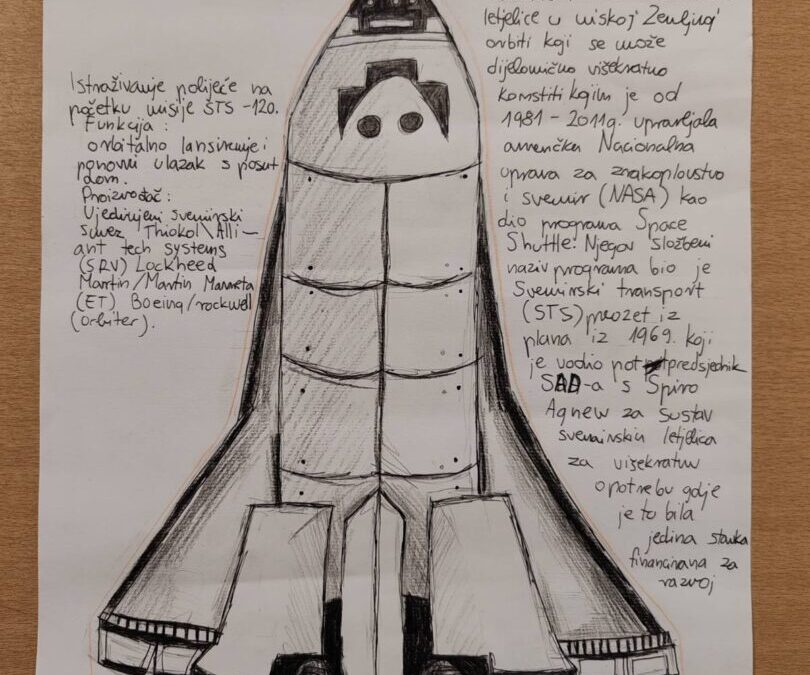 Istraživanje polijeće na
početku misije ŠTS -120.
Funkcija :
orbitalno lansiranje i
ponovni ulazak s posut
dom.
Proizvođač :
Ujedinjeni svemirski
savez Thiokol\Alli-
ant tech systems
(SRV) Lockheed
Martin/Martin Marieta
(ET) Boeing/rockwell
(orbiter).
letjelice u niskoj Zemljinoj
orbiti koji se može
dijelomično višekratno
koristiti kojim je od
1981 - 2011g. upravljala
američka Nacionalna
uprava za zrakoplovstvo
i svemir (NASA) kao
dio programa Space
Shuttle. Njegov službeni
naziv programa bio je
Svemirski transport
(STS) preozet iz
plana iz 1969. koji
je vodio potpredsjednik
SAD-a s Spiro
Agnew za sustav
svemirskih letjelica
za višekratnu
opotrebu gdje
je to bila
jedina stavka
financirana za
razvoj